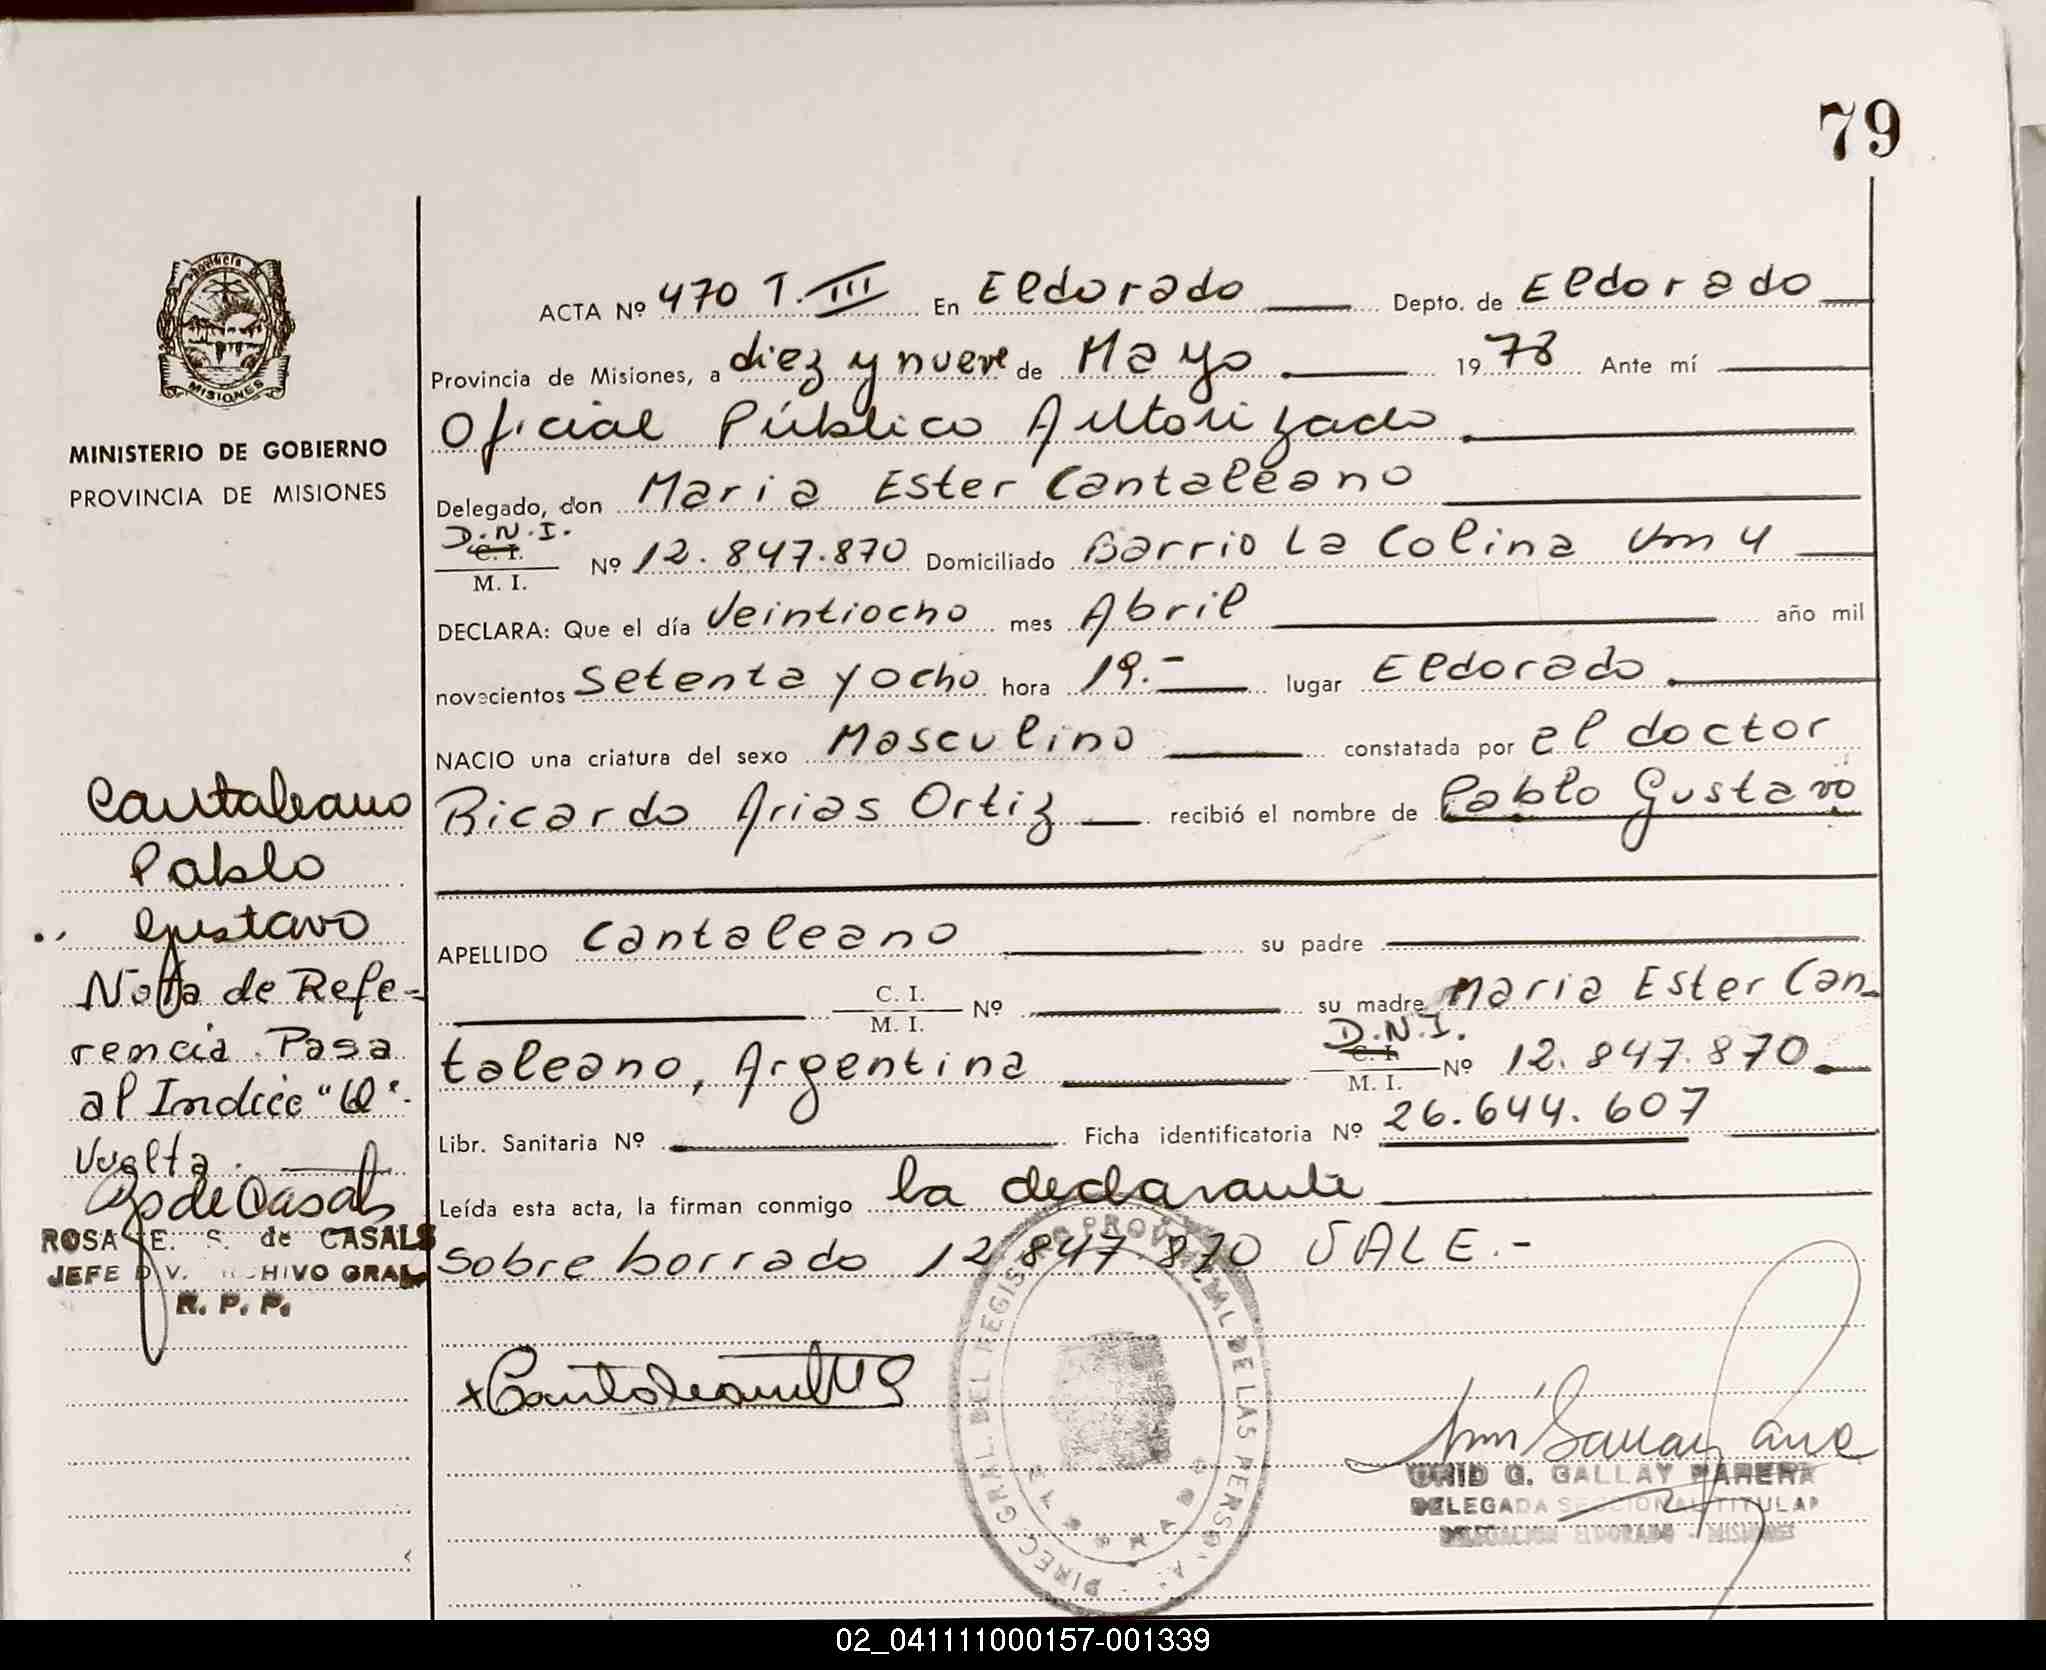 79
Provincia de
MISIONES
MINISTERIO DE GOBIERNO
PROVINCIA DE MISIONES
ACTA Nº 470 T. III En Eldorado Depto. de Eldorado
Provincia de Misiones, a diez y nueve de Mayo 1978 Ante mí
Oficial Público Autorizado
Delegado, don Maria Ester Cantaleano
D.N.I.
C. I.
M. I. Nº 12.847.870 Domiciliado Barrio La Colina Km 4
DECLARA: Que el día Veintiocho mes Abril año mil
novecientos setenta y ocho hora 19.- lugar Eldorado
NACIO una criatura del sexo Masculino constatada por el doctor
Ricardo Arias Ortiz recibió el nombre de Pablo Gustavo
APELLIDO Cantaleano su padre
C. I.
M. I. Nº su madre Maria Ester Can-
taleano, Argentina D.N.I.
C. I.
M. I. Nº 12.847.870
Libr. Sanitaria Nº Ficha identificatoria Nº 26.644.607
Leída esta acta, la firman conmigo la declarante
sobre borrado 12 847 870 VALE.-
Cantaleano
Pablo
Gustavo
Nota de Refe-
rencia. Pasa
al Indice "Q".
Vuelta.
ROSA E. S. de CASALS
JEFE DIV. ARCHIVO GRAL
R. P. P.
DIREC. GRAL. DEL REGISTRO PROVINCIAL DE LAS PERSONAS
ELDORADO
G. GALLAY PARERA
DELEGADA SECCIONAL TITULAR
DELEGACION ELDORADO - MISIONES
02_041111000157-001339